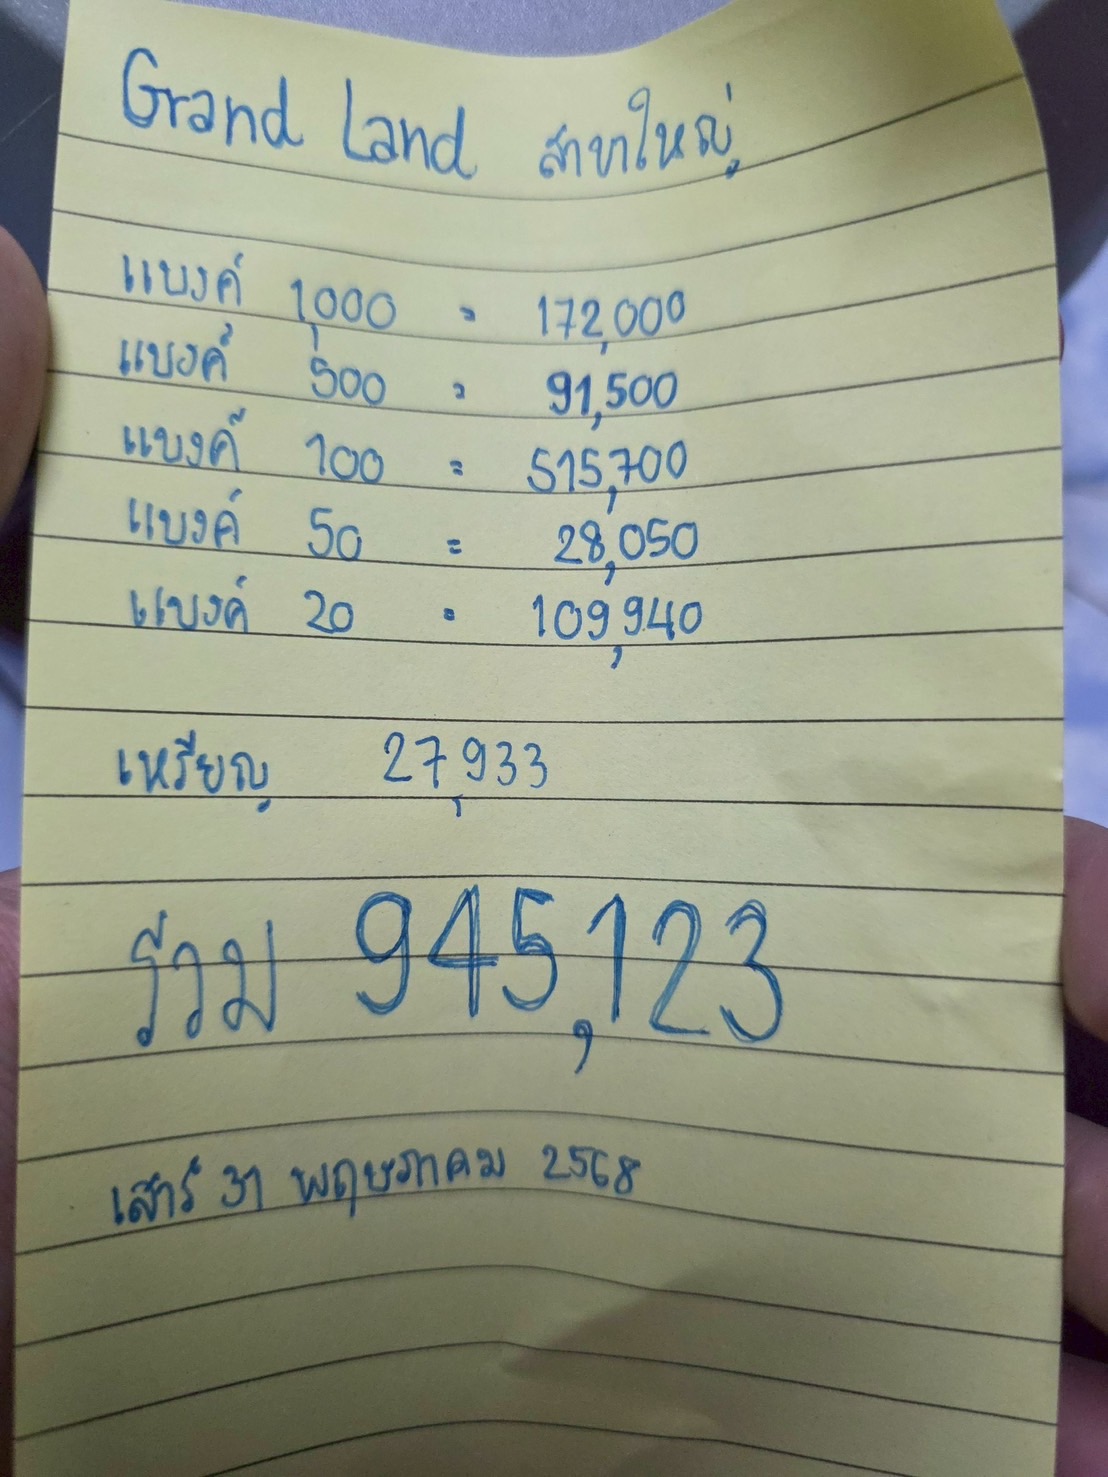 Grand Land สาขาใหญ่
แบงค์ 1,000 = 172,000
แบงค์ 500 = 91,500
แบงค์ 100 = 515,700
แบงค์ 50 = 28,050
แบงค์ 20 = 109,940
เหรียญ 27,933
รวม 945,123
เสาร์ 31 พฤษภาคม 2568